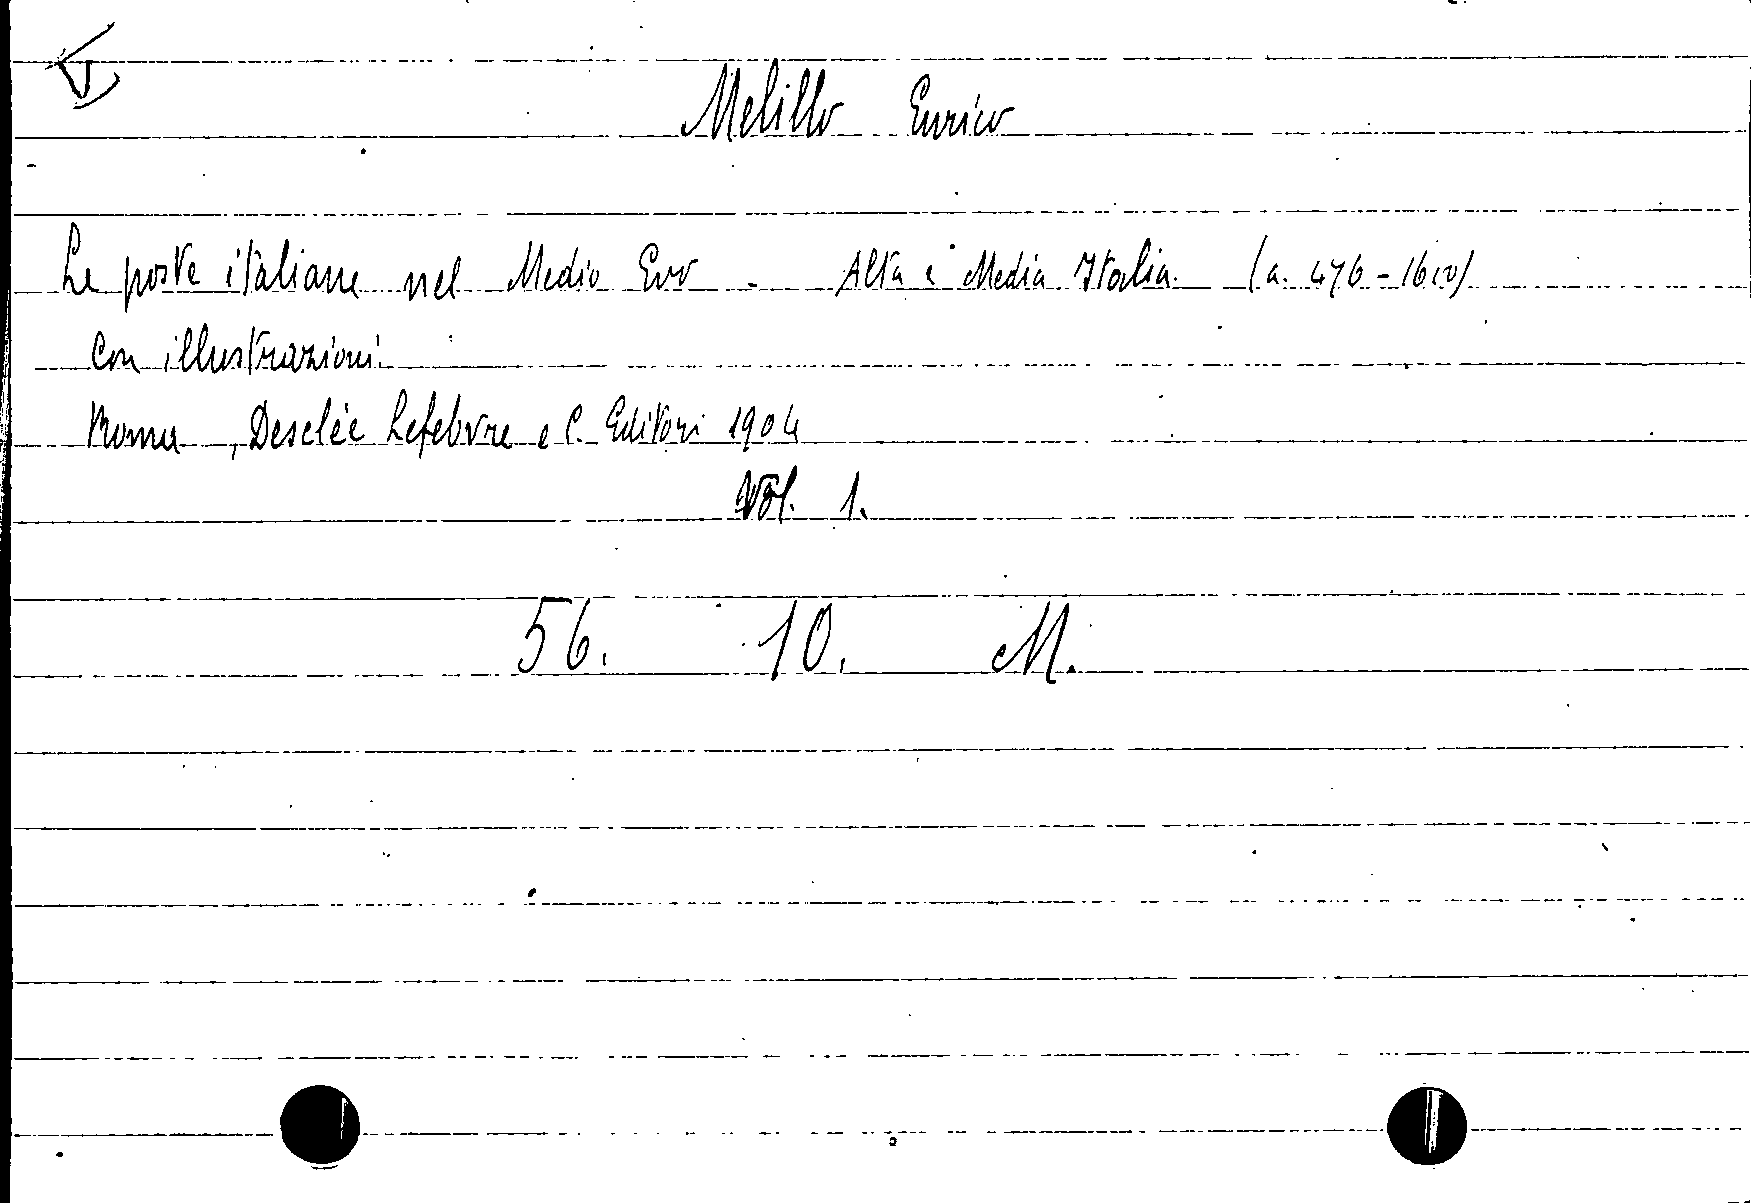 Melillo Enrico
Le poste italiane nel Medio Evo - Alta e Media Italia. (a. 476 - 1600)
con illustrazioni.
Roma, Desclée Lefebvre e C. Editori 1904
Vol. 1.
56. 10. M.